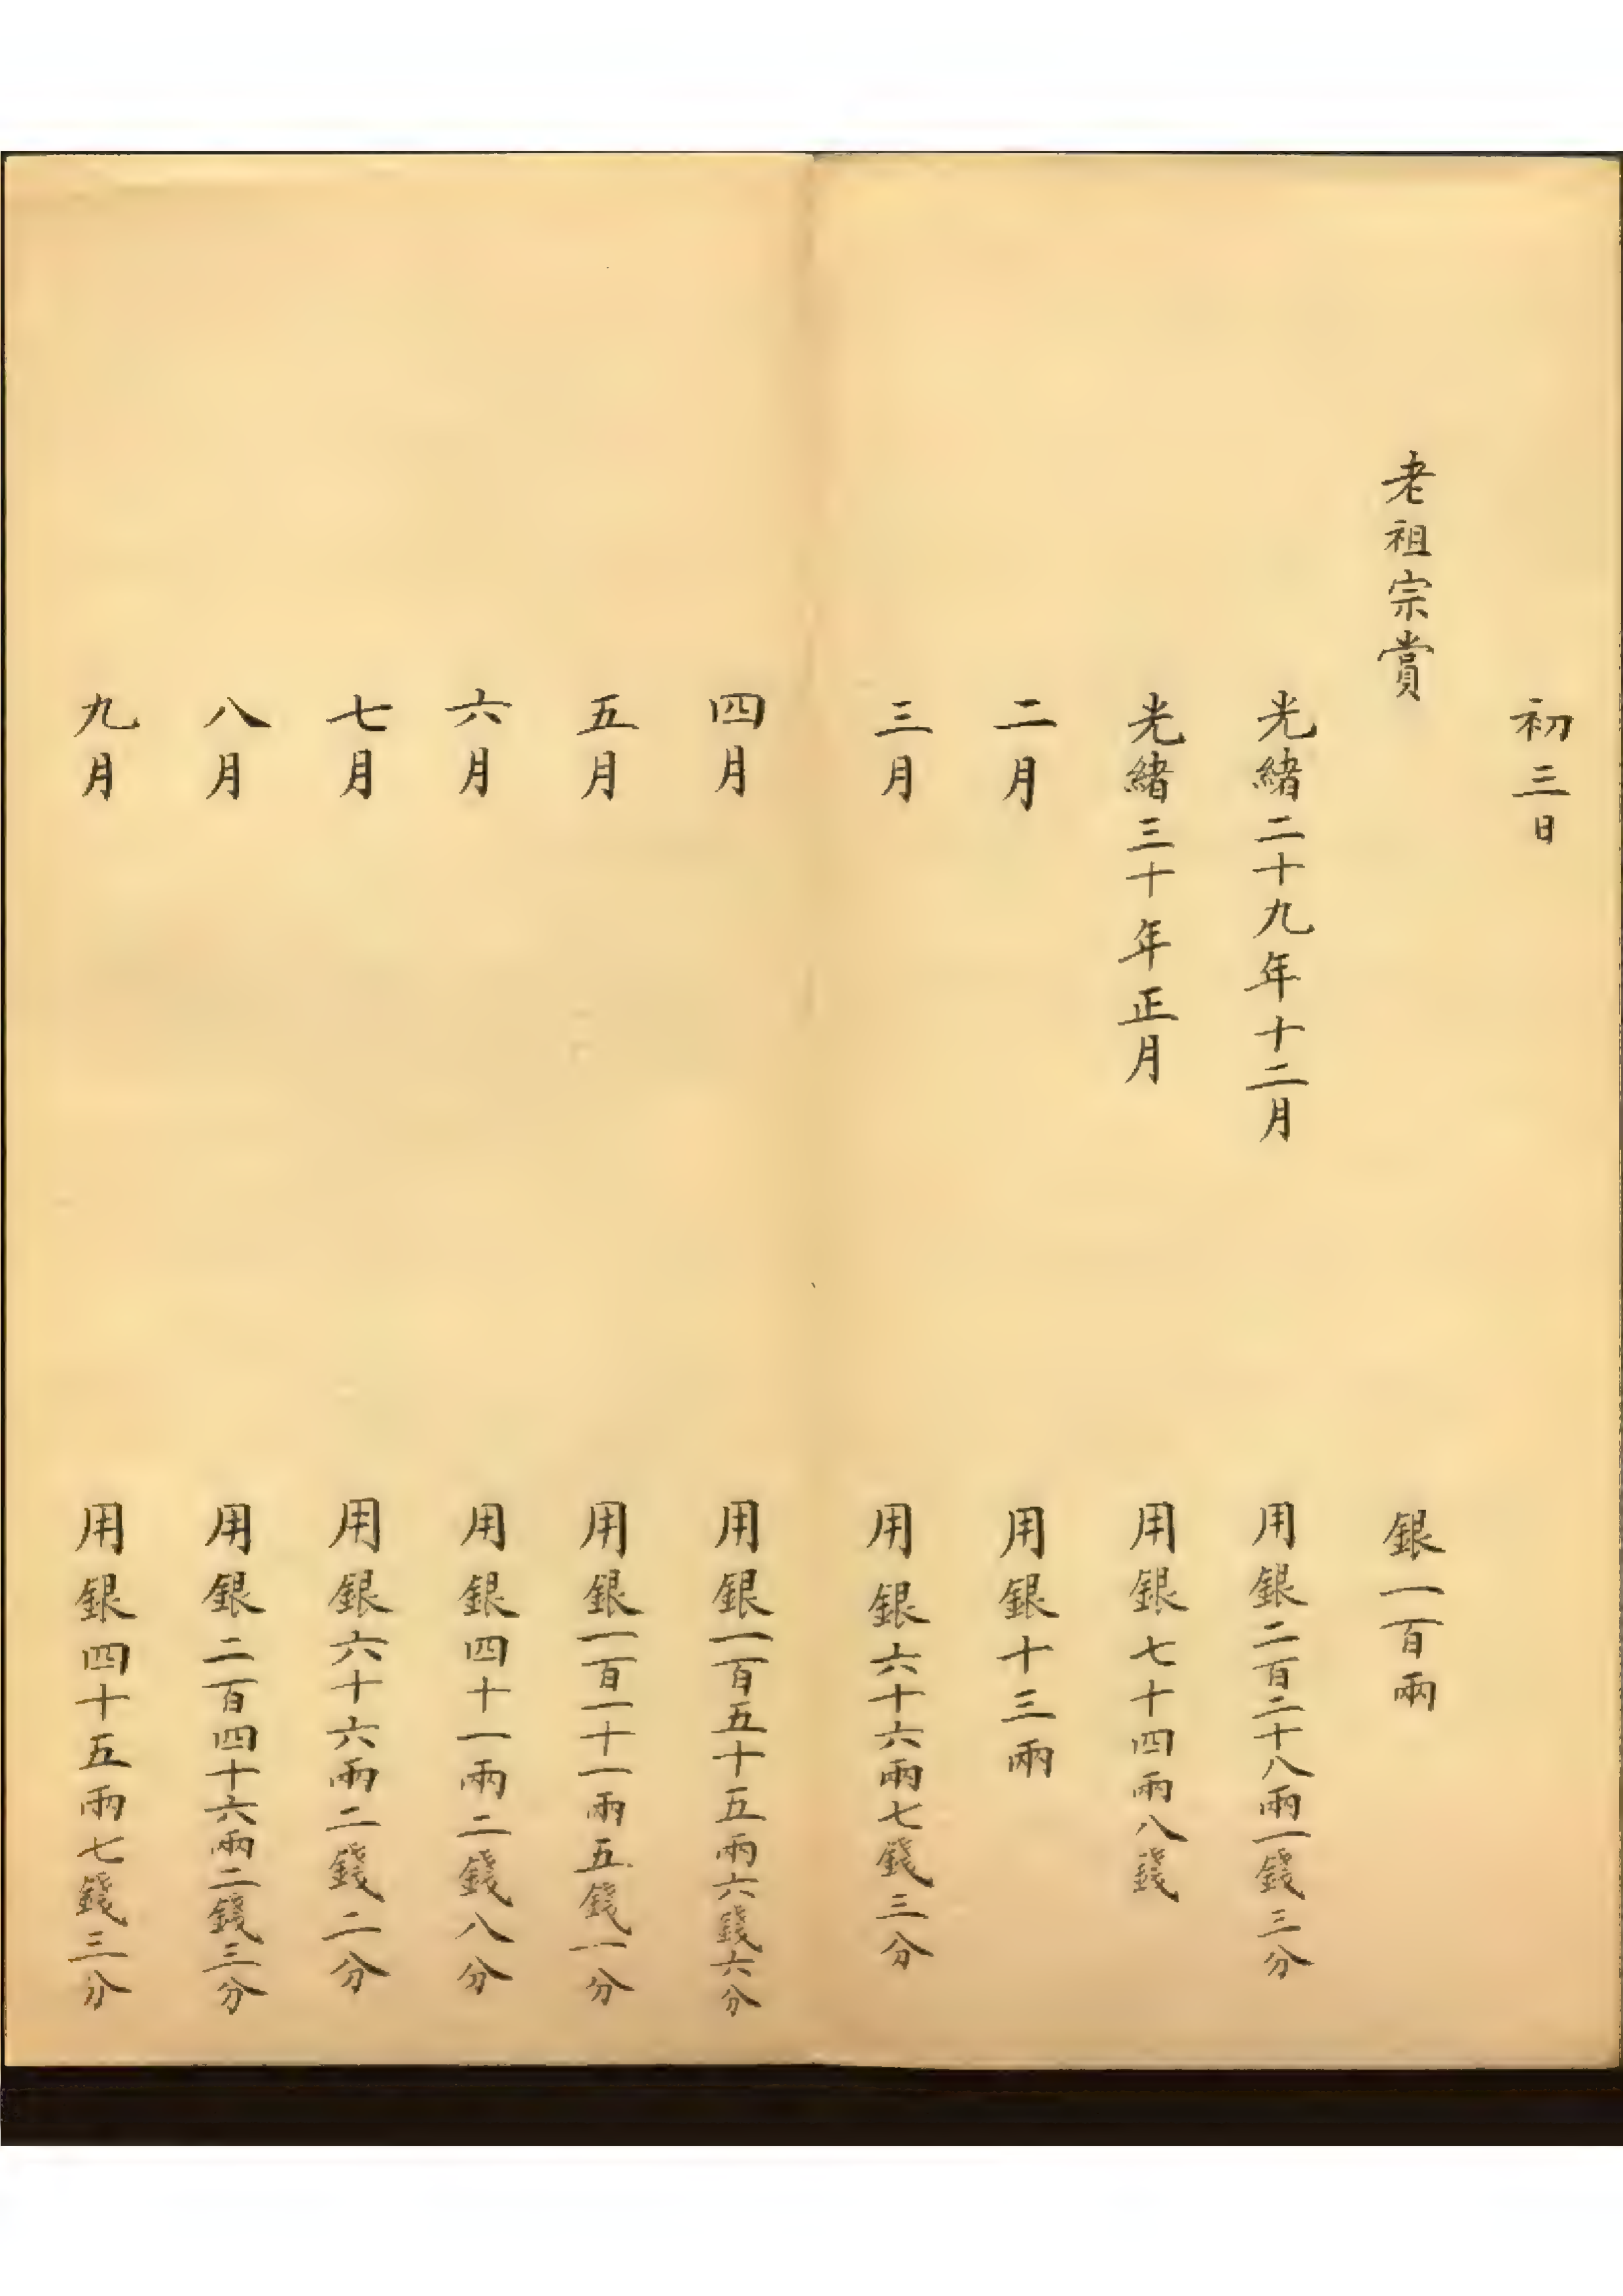 初三日
老祖宗賞 銀一百兩
光緒二十九年十二月 用銀二百二十八兩一錢三分
光緒三十年正月 用銀七十四兩八錢
二月 用銀十三兩
三月 用銀六十六兩七錢三分
四月 用銀一百五十五兩六錢六分
五月 用銀一百一十一兩五錢一分
六月 用銀四十一兩二錢八分
七月 用銀六十六兩二錢二分
八月 用銀二百四十六兩二錢三分
九月 用銀四十五兩七錢三分